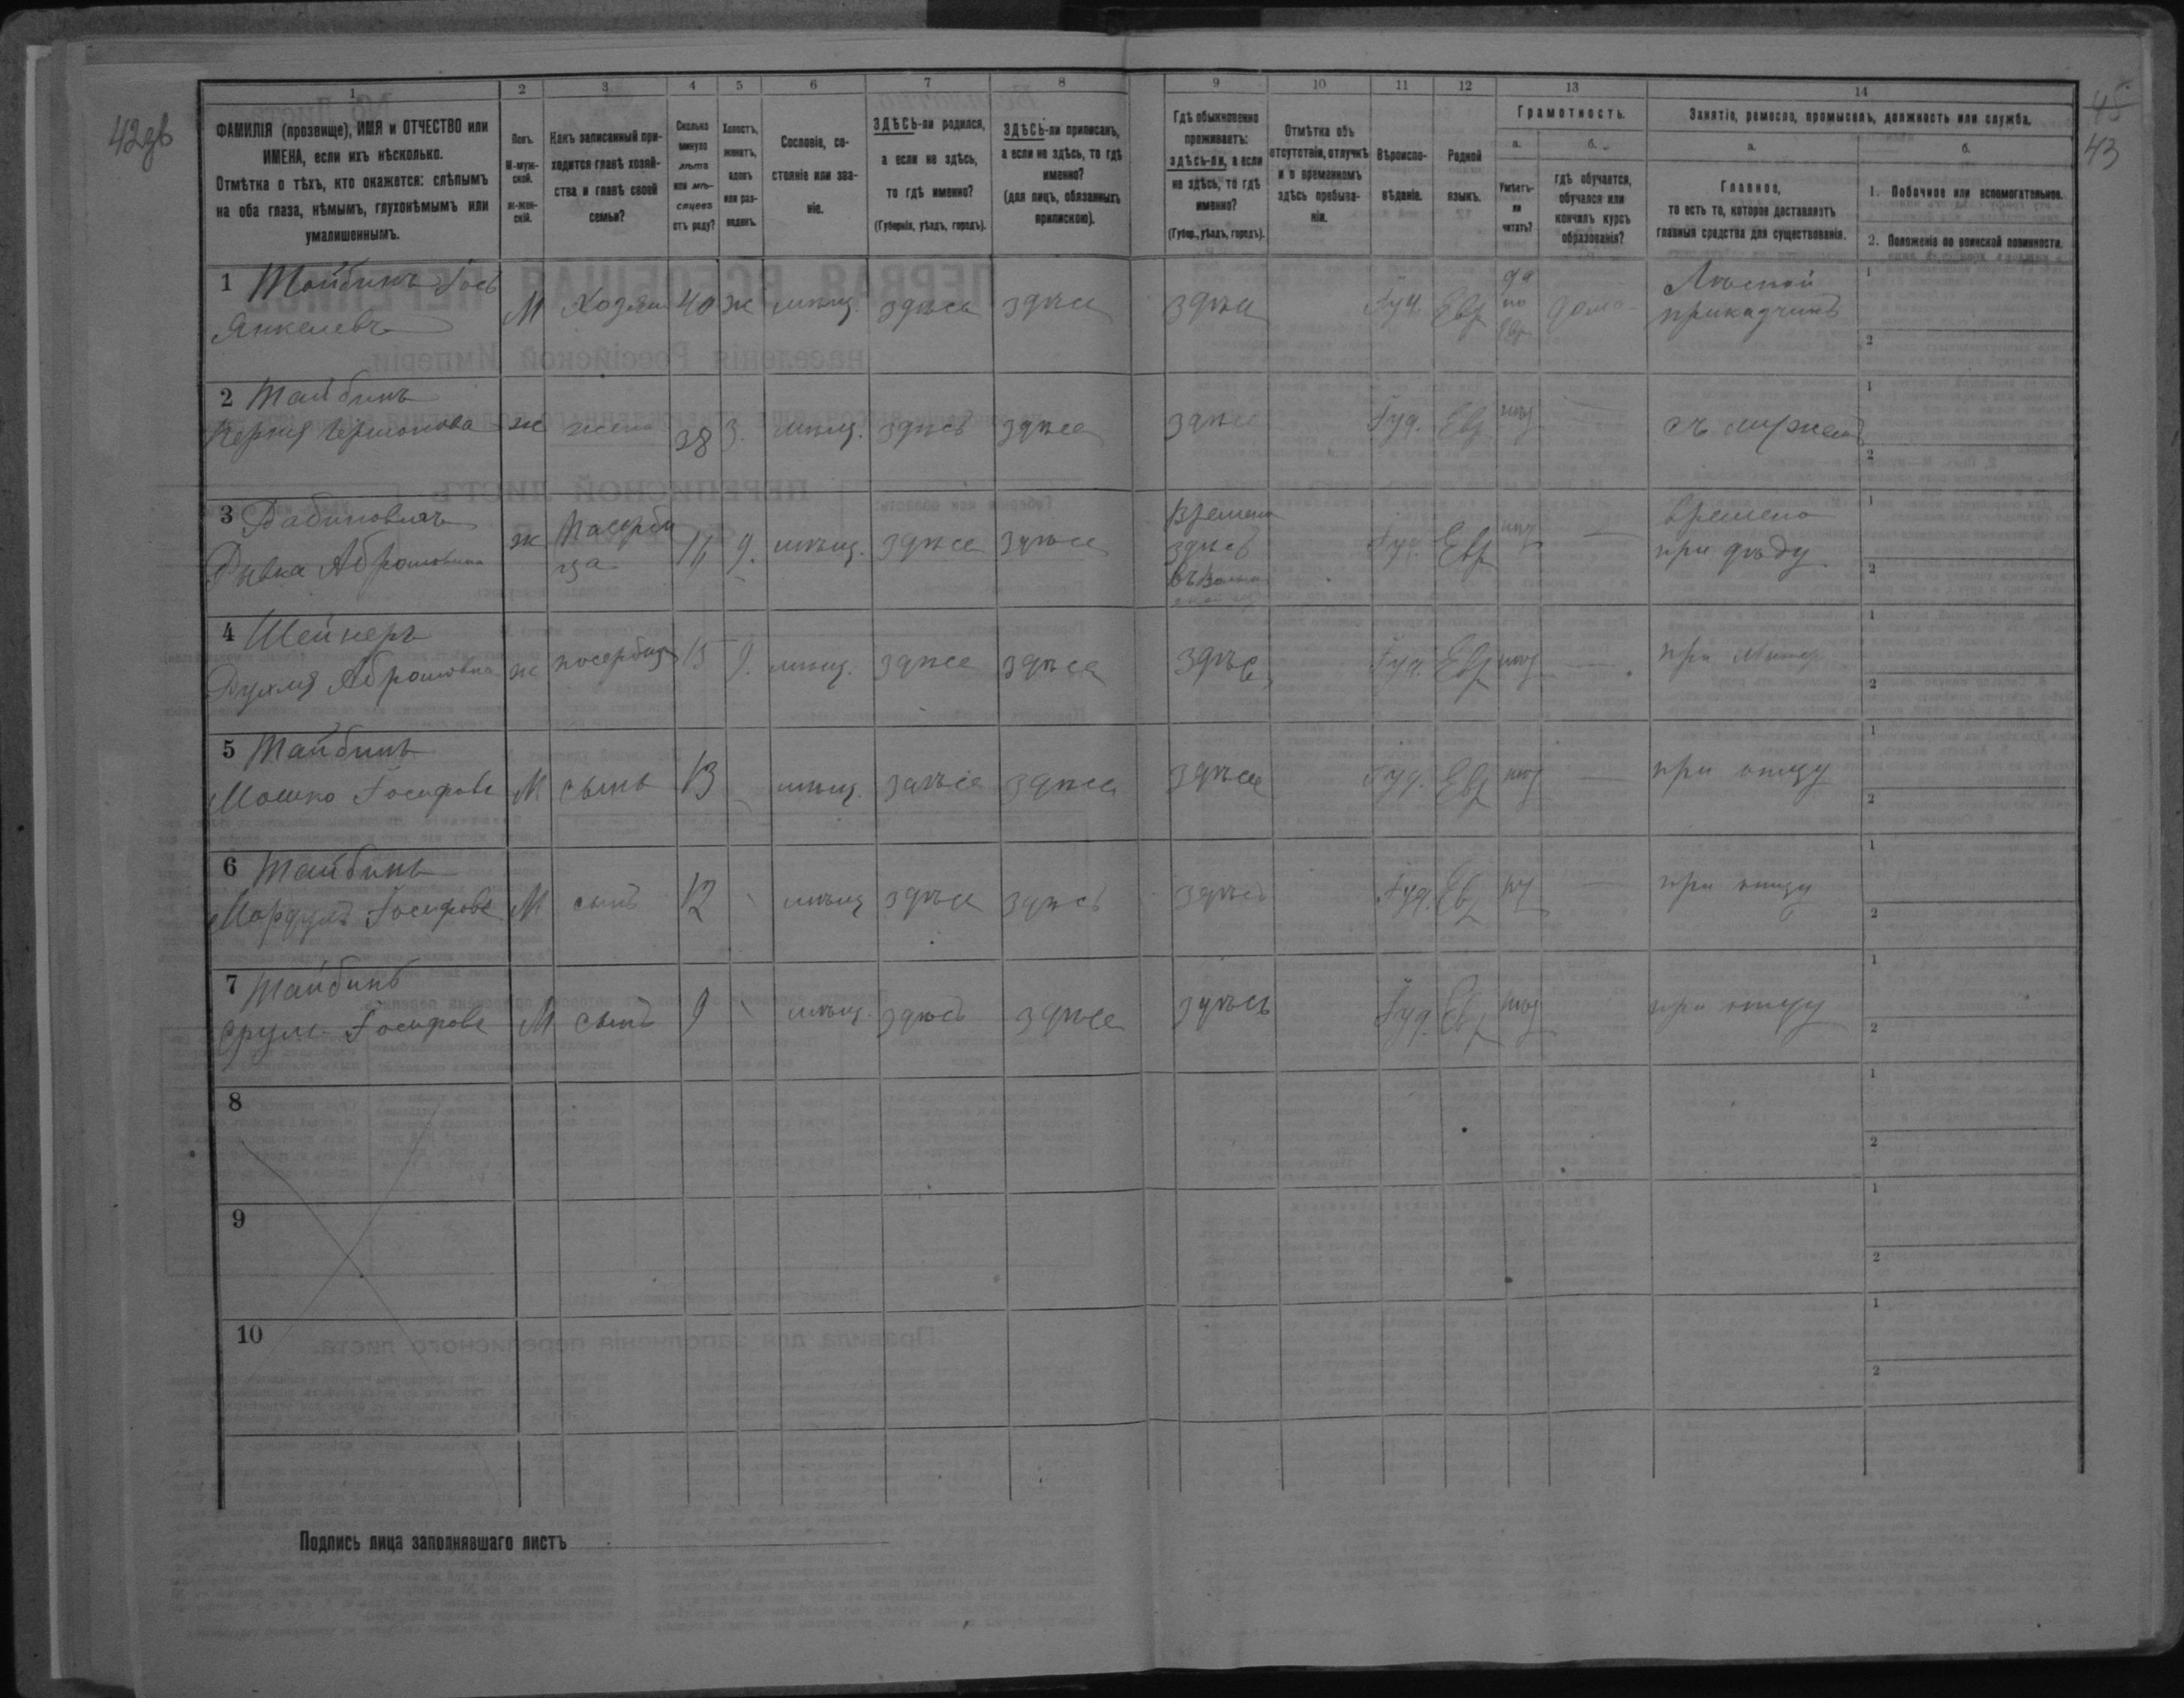 42
45
43
1 2 3 4 5 6 7 8 9 10 11 12 13 14
ФАМИЛІЯ (прозвище), ИМЯ и ОТЧЕСТВО или
ИМЕНА, если ихъ нѣсколько.
Отмѣтка о тѣхъ, кто окажется: слѣпымъ
на оба глаза, нѣмымъ, глухонѣмымъ или
умалишеннымъ.
Полъ.
М-муж-
ской.
Ж-жен-
скій.
Какъ записанный при-
ходится главѣ хозяй-
ства и главѣ своей
семьи?
Сколько
минуло
лѣтъ
или мѣ-
сяцевъ
отъ роду?
Холостъ,
женатъ,
вдовъ
или раз-
веденъ.
Сословіе, со-
стояніе или зва-
ніе.
ЗДѢСЬ-ли родился,
а если не здѣсь,
то гдѣ именно?
(Губернія, уѣздъ, городъ).
ЗДѢСЬ-ли приписанъ,
а если не здѣсь, то гдѣ
именно?
(для лицъ, обязанныхъ
припискою).
Гдѣ обыкновенно
проживаетъ:
здѣсь-ли, а если
не здѣсь, то гдѣ
именно?
(Губер., уѣздъ, городъ).
Отмѣтка объ
отсутствіи, отлучкѣ
и о временномъ
здѣсь пребыва-
ніи.
Вѣроиспо-
вѣданіе.
Родной
языкъ.
Грамотность.
а.
Умѣетъ-
ли
читать?
б.
гдѣ обучается,
обучался или
кончилъ курсъ
образованія?
Занятіе, ремесло, промыселъ, должность или служба.
а.
Главное,
то есть то, которое доставляетъ
главныя средства для существованія.
б.
1. Побочное или вспомогательное.
2. Положеніе по воинской повинности.
1 Тайбинъ
Янкелевъ М Хозяин 40 ж мѣщ. здѣсь здѣсь здѣсь Іуд. Евр да по Евр дома Лѣсной приказчикъ 1 2
2 Тайбинъ
ж жена 38 З. мѣщ. здѣсь здѣсь здѣсь Іуд. Евр нѣт — съ мужемъ 1 2
3 Рабиновичъ
Рывка Абрамовна ж Пасербица мѣщ. здѣсь здѣсь Времено здѣсь Іуд. Евр нѣт — времено при дѣду 1 2
4 Шейнеръ
Абрамовна ж пасербица 15 мѣщ. здѣсь здѣсь здѣсь Іуд. Евр нѣт — при 1 2
5 Тайбинъ
Мошко Іосифовъ М сынъ 13 мѣщ. здѣсь здѣсь здѣсь Іуд. Евр нѣт — при отцу 1 2
6 Тайбинъ
Мордухъ Іосифовъ М сынъ 12 мѣщ здѣсь здѣсь здѣсь Іуд. Евр нѣт — при отцу 1 2
7 Тайбинъ
Сруль Іосифовъ М сынъ 9 мѣщ. здѣсь здѣсь здѣсь Іуд. Евр нѣт при отцу 1 2
8 1 2
9 1 2
10 1 2
Подпись лица заполнявшаго листъ